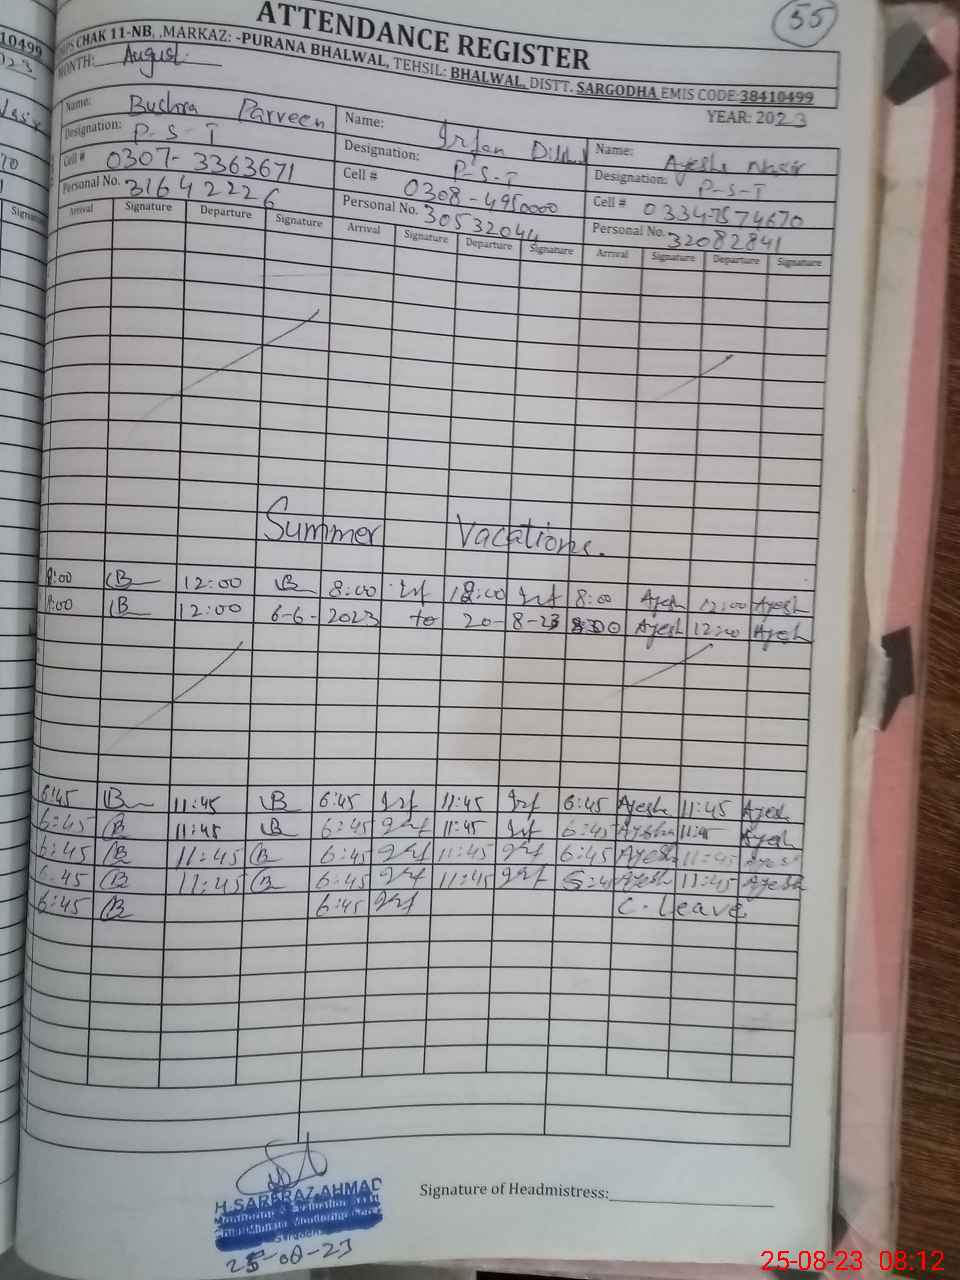 55
ATTENDANCE REGISTER
CHAK 11-NB, ,MARKAZ: -PURANA BHALWAL, TEHSIL: BHALWAL, DISTT. SARGODHA EMIS CODE:38410499
MONTH: August YEAR: 2023
Name: Bushra Parveen Name: Irfan Name: Ayesha Nasir
Designation: P-S-T Designation: P-S-T Designation: P-S-T
Cell # 0307-3363671 Cell # 0308-4950000 Cell # 0334-7574670
Personal No. 31642226 Personal No. 30532044 Personal No. 32082841
Arrival Signature Departure Signature Arrival Signature Departure Signature Arrival Signature Departure Signature
Summer Vacations.
8:00 B 12:00 B 8:00 Irf 12:00 Irf 8:00 Ayesh 12:00 Ayesh
8:00 B 12:00 6-6-2023 to 20-8-23 8:00 Ayesh 12:00 Ayesh
6:45 B 11:45 B 6:45 Irf 11:45 Irf 6:45 Ayesh 11:45 Ayesh
6:45 B 11:45 B 6:45 Irf 11:45 Irf 6:45 Ayesha 11:45 Ayesh
6:45 B 11:45 B 6:45 Irf 11:45 Irf 6:45 Ayesh 11:45 Ayesh
6:45 B 11:45 B 6:45 Irf 11:45 Irf Ayesh 11:45 Ayesh
6:45 B 6:45 Irf C. Leave
Signature of Headmistress:
H.SARFRAZ AHMAD
25-08-23
25-08-23 08:12